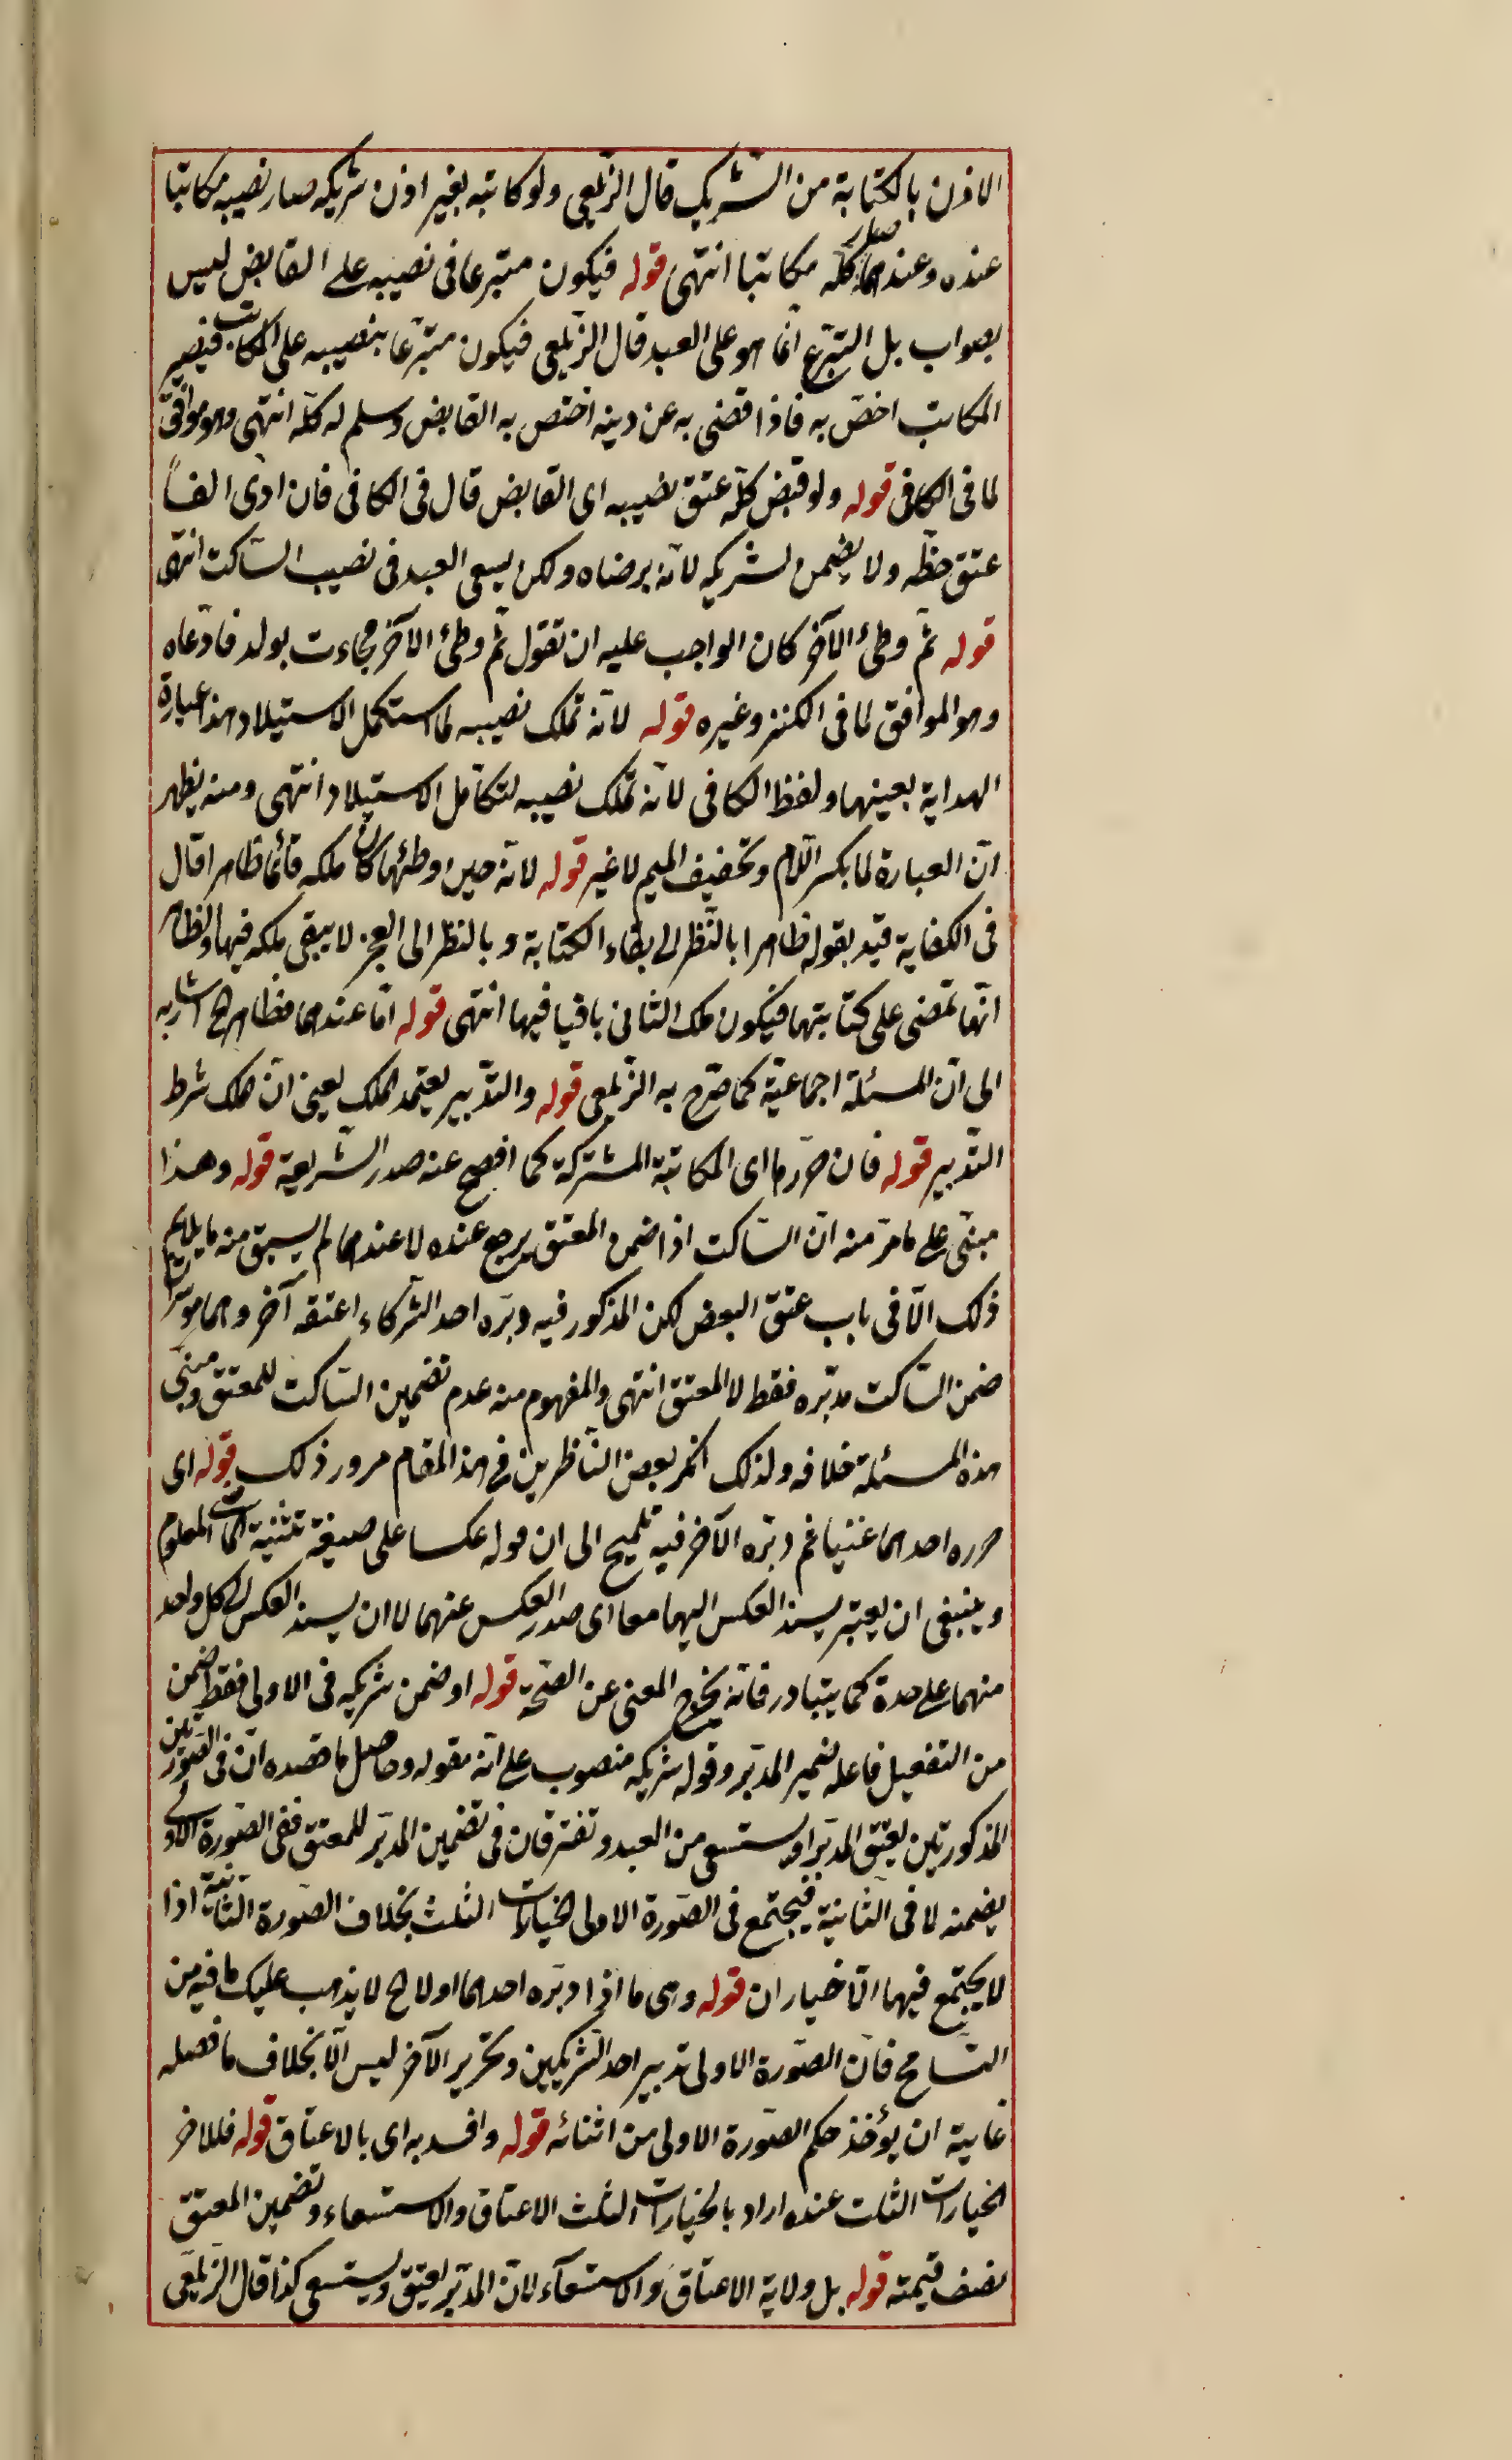 الاذن بالكتابة من الشريك قال الزيلعي ولو كاتبه بغير اذن شريكه صار نصيبه مكاتبا
عنده وعندهما صار كله مكاتبا انتهى قوله فيكون متبرعا في نصيبه على القابض ليس
بصواب بل التبرع انما هو على العبد قال الزيلعي فيكون متبرعا بنصيبه على المكاتب فيصير
المكاتب اخصّ به فاذا قضى به عن دينه اختص به القابض وسلم له كلّه انتهى وهو موافق
لما في الكافي قوله ولو قبض كلّه عتق نصيبه اى القابض قال في الكافي فان ادّى الفاً
عتق حظّه ولا يضمن لشريكه لانّه برضاه ولكن يسعى العبد في نصيب السّاكت انتهى
قوله ثم وطئ الآخر كان الواجب عليه ان تقول ثم وطئ الآخر فجاءت بولد فادّعاه
وهو الموافق لما في الكنز وغيره قوله لانّه تملّك نصيبه لما استكمل الاستيلاد هذا عبارة
الهداية بعينها ولفظ الكافي لانّه تملّك نصيبه لتكامل الاستيلاد انتهى ومنه يظهر
انّ العبارة لما بكسر اللّام وتخفيف الميم لا غير قوله لانّه حين وطئها كان ملكه قائما ظاهرا قال
في الكفاية قيد بقوله ظاهرا بالنّظر الى بقاء الكتابة وبالنظر الى العجز لا يبقى ملكه فيها والظاهر
انّها تمضى على كتابتها فيكون ملك الثاني باقيا فيها انتهى قوله امّا عندهما فظاهر ح اشار به
الى انّ المسئلة اجماعيّة كما صرّح به الزّيلعي قوله والتدبير يعتمد الملك يعنى انّ الملك شرط
التّدبير قوله فان حرّرها اى المكاتبة المشتركة كما افصح عنه صدر الشّريعة قوله وهذا
مبنّى على ما مرّ منه انّ السّاكت اذا ضمن المعتق يرجع عنده لا عندهما لم يسبق منه ما يلايم
ذلك الّا في باب عتق البعض لكن المذكور فيه دبّره احد الشّركاء اعتقه آخر وهما موسران
ضمن السّاكت مدبّره فقط لا المعتق انتهى والمفهوم منه عدم تضمين السّاكت للمعتق ومبنى
هذه المسئلة خلافه ولذلك انكر بعض النّاظرين في هذا المقام مرور ذلك قوله اى
حرره احدهما غنيا ثم دبّره الآخر فيه تلميح الى ان قوله عكسا على صيغة تثنية الماضى المعلوم
وينبغي ان يعتبر يسند العكس اليهما معا اى صدر العكس عنهما لا ان يسند العكس الى كل واحد
منهما على حدة كما يتبادر فانّه يخرج المعنى عن الصّحة قوله او ضمن شريكه في الاولى فقط ضمن
من التفعيل فاعله ضمير المدبّر وقوله شريكه منصوب على انّه مفعوله وحاصل ما قصده انّ في الصّورتين
المذكورتين يعتق المدبّر او يستسعى من العبد وتفترقان في تضمين المدبّر للمعتق ففي الصّورة الاولى
يضمنه لا في الثانية فيجتمع في الصّورة الاولى الخيارات الثلث بخلاف الصّورة الثانية اذا
لا يجتمع فيها الّا خياران قوله وهى ما اذا دبّره احدهما اولا ح لا يذهب عليك ما فيه من
التّسامح فانّ الصّورة الاولى تدبير احد الشّريكين وتحرير الآخر ليس الّا بخلاف ما فصله
غاية ان يؤخذ حكم الصّورة الاولى من اثنائه قوله وافسد به اى بالاعتاق قوله فللاخر
الخيارات الثلث عنده اراد بالخيارات الثلث الاعتاق والاستسعاء وتضمين المعتق
نصف قيمته قوله بل ولاية الاعتاق والاستسعاء لانّ المدبّر يعتق ويستسعى كذا قال الزّيلعي